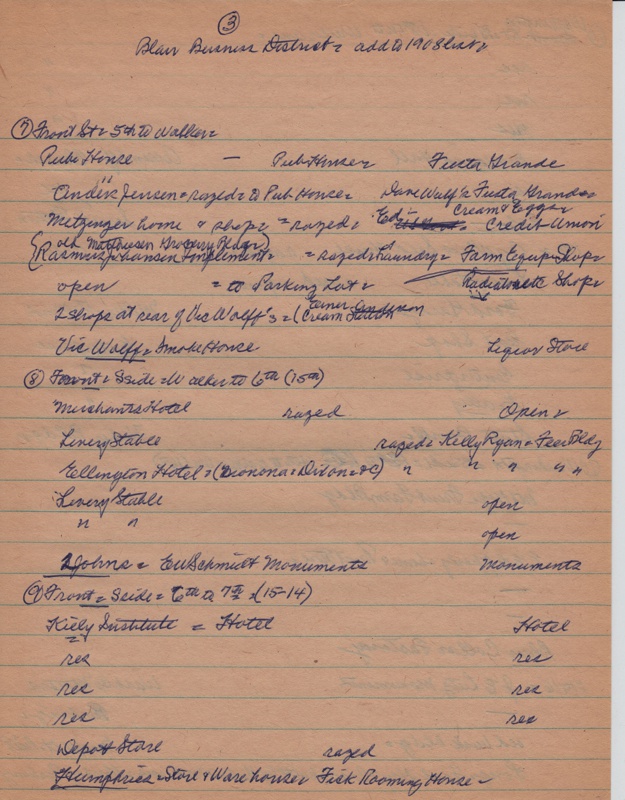 3
Blair Business District = add to 1908 list =
7 Front St = 5th to Walker =
Pub. House — Pub. House = Fiesta Grande
Andew Jensen = razed = to Pub House = Dave Wulf's Fiesta Grande =
Metzinger home " shop = razed = Ed's Cream & Eggs Credit Union
(old Matthiesen Grocery Bldg)
Rasmus Johansen Implement = = razed = Laundry = Farm Equip Shop =
open = to Parking Lot = Radiator Shop =
2 shops at rear of Vic Wolff's = (Elmer Anderson Cream Station
Vic Wolff = Smoke House Liquor Store
8 Front = S side = Walker to 6th (15th)
Merchants Hotel razed Open =
Livery Stable razed = Kelly Ryan = Feer Bldg
Ellington Hotel = ( = Dixon = &c) " " " " "
Livery Stable open
" " open
Johns = EW Schmidt Monuments Monuments
9 Front = S side = 6th to 7th = (15-14)
Kiely Institute = Hotel Hotel
res res
res res
res res
Depot Store razed
Humphries = Store & Warehouse = Fisk Rooming House =